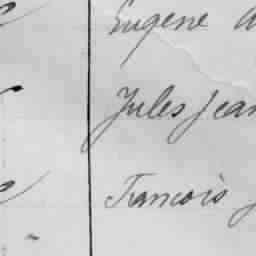 Eugene
Jules Jean
Francois